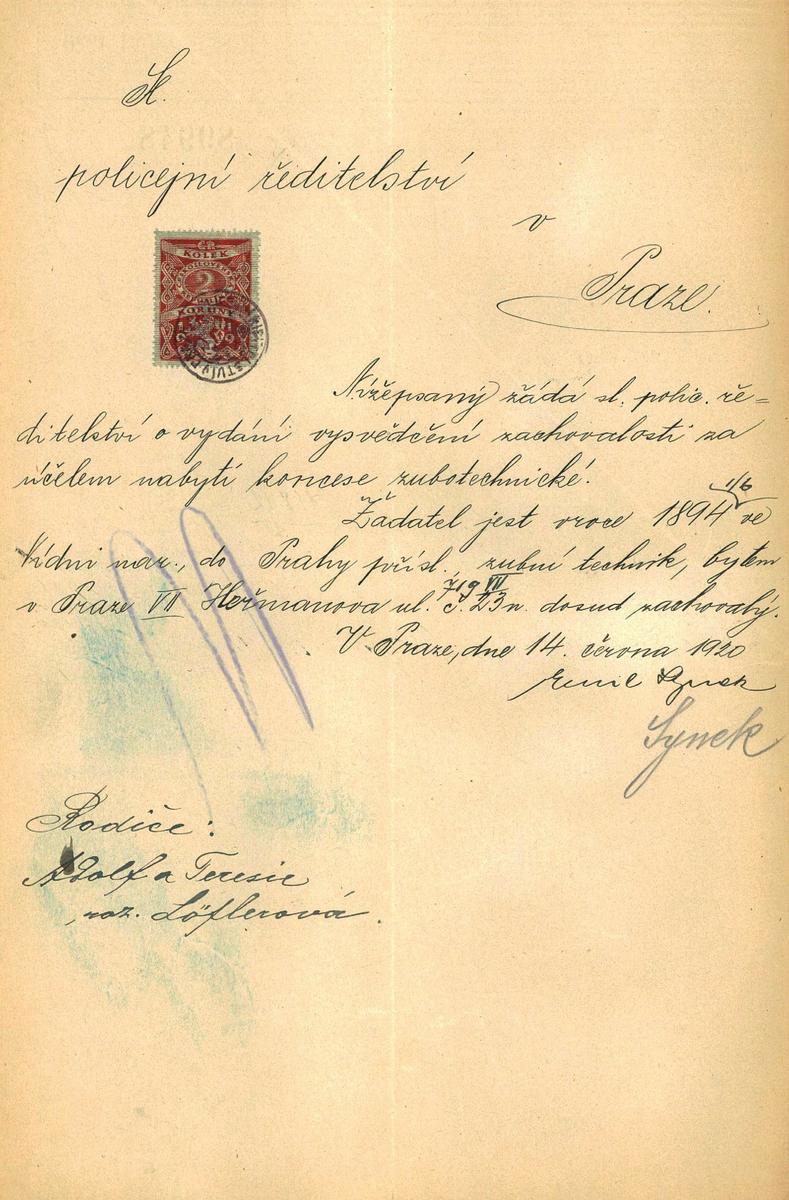 K.
policejní ředitelství
v
Praze.
ČR
KOLEK
2
KORUNY
1919
Nížepsaný žádá sl. polic. ře=
ditelství o vydání vysvědčení zachovalosti za
účelem nabytí koncese zubotechnické.
1/6
Žadatel jest v roce 1894 ve
Vídni nar., do Prahy přísl., zubní technik, bytem
719 VII
v Praze VII Heřmanova ul. č. 23 n. dosud zachovalý.
V Praze, dne 14. června 1920
Emil Synek
Synek
Rodiče:
Adolf a Teresie
roz. Löflerová.